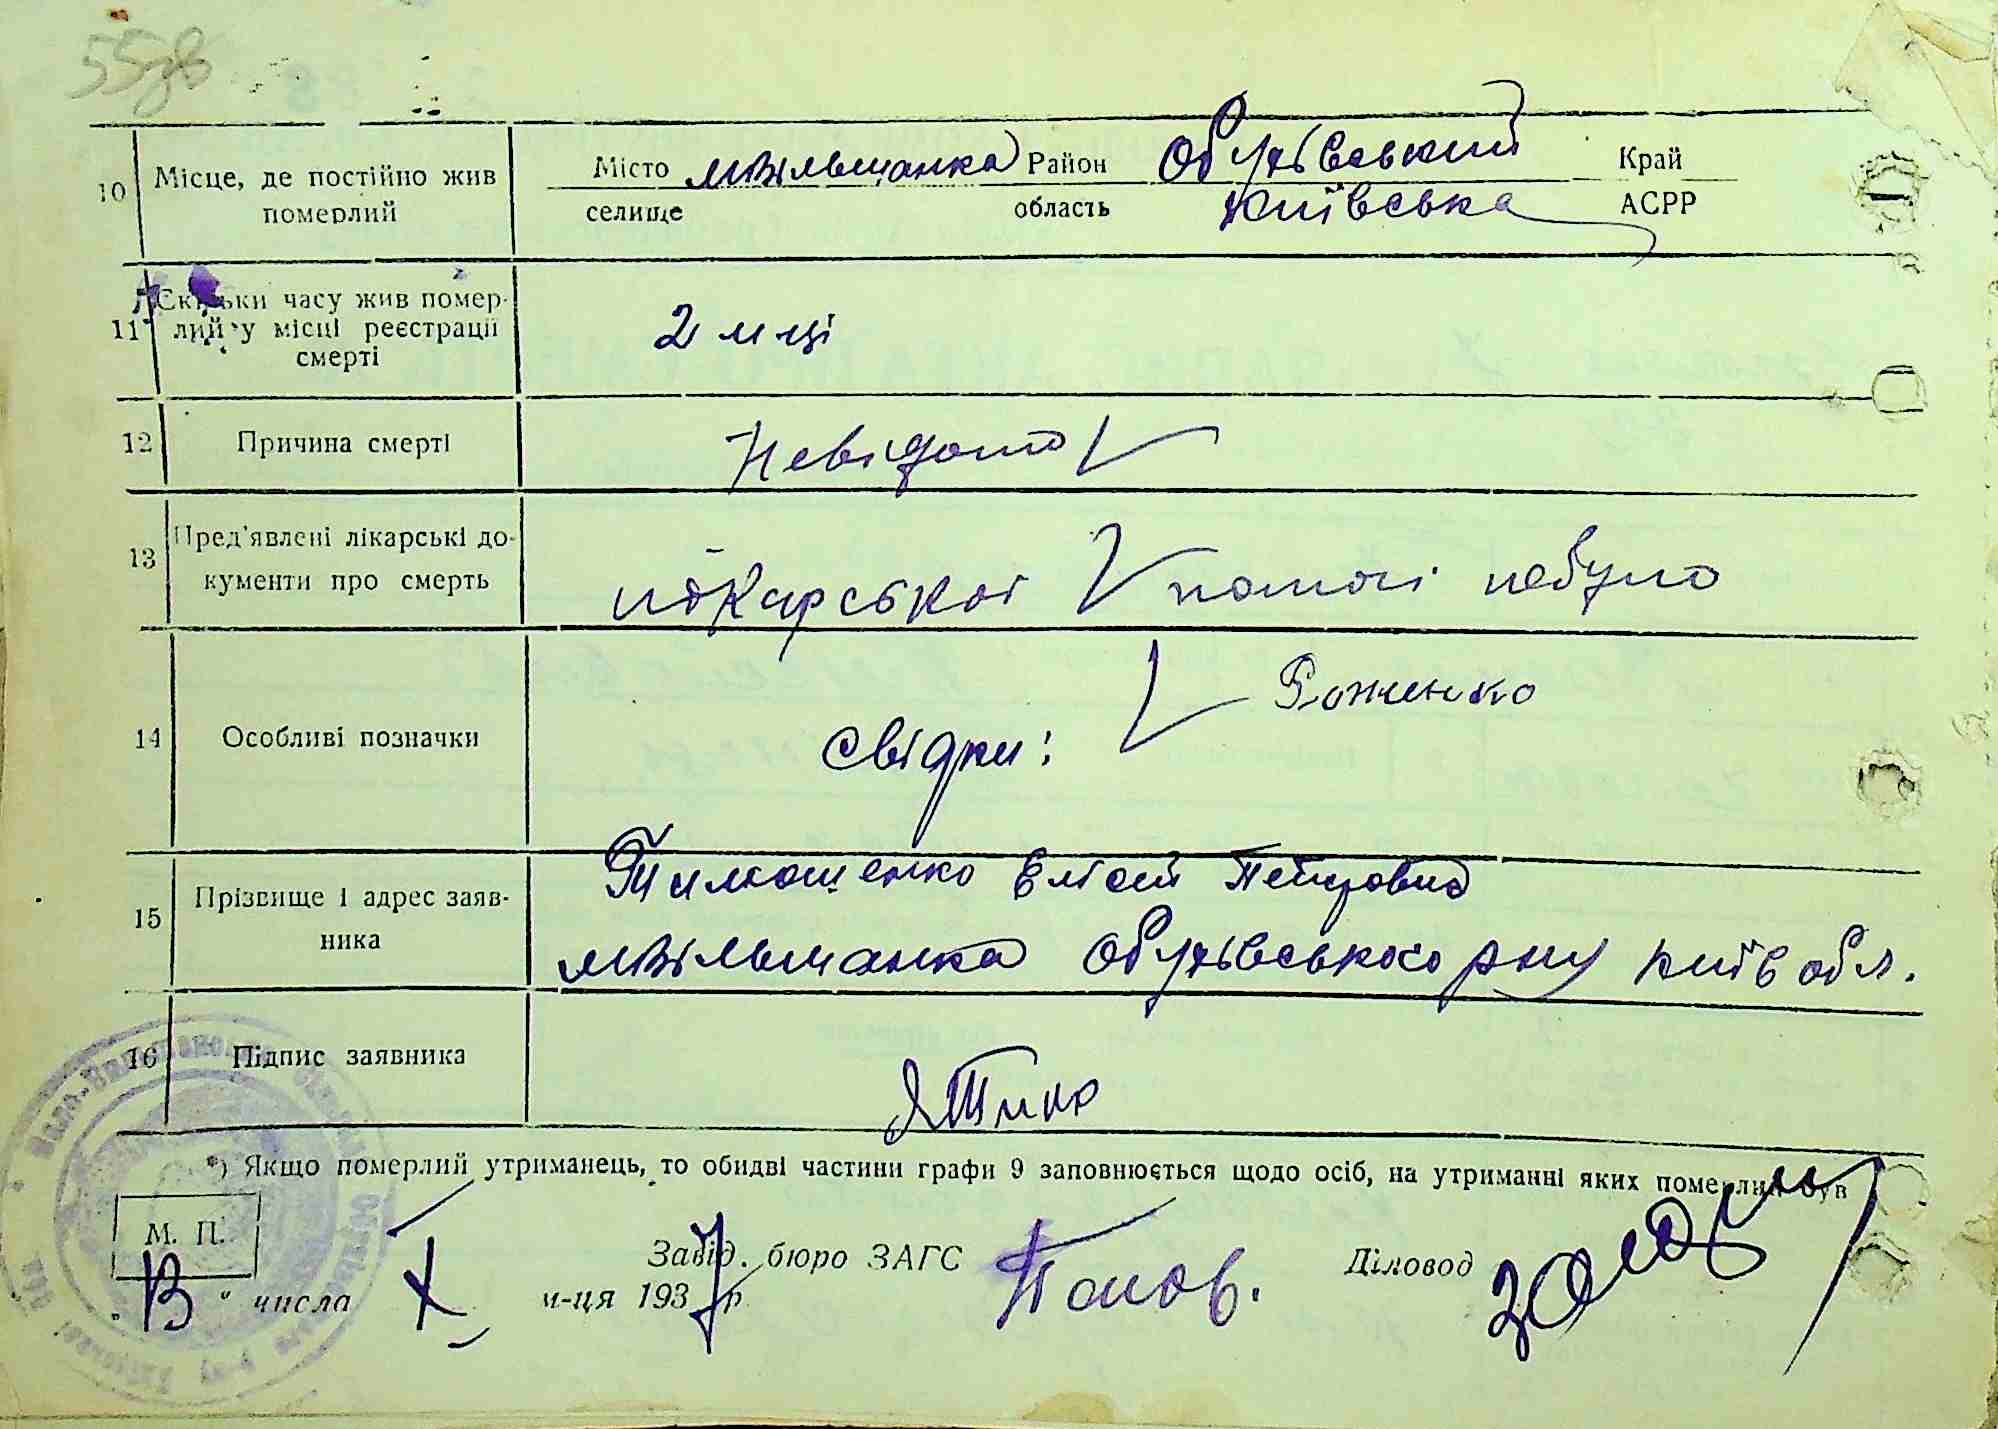 55зв
10 Місце, де постійно жив померлий
Місто мвільшанка Район Обухівський Край
селище область Київська АСРР
11 Скільки часу жив помер-
лий у місці реєстрації
смерті
2 м ці
12 Причина смерті Невідомо
13 Пред'явлені лікарські до-
кументи про смерть
лікарської помочі небуло
14 Особливі позначки
свідки: Роженко
15 Прізвище і адрес заяв-
ника
Тимошенко Елісей Петрович
мвільшанка Обухівського рну Київ обл.
16 Підпис заявника
*) Якщо померлий утриманець, то обидві частини графи 9 заповнюється щодо осіб, на утриманні яких померлий був
М. П.
Завід. бюро ЗАГС Діловод
„13“ числа X м-ця 1937 р.